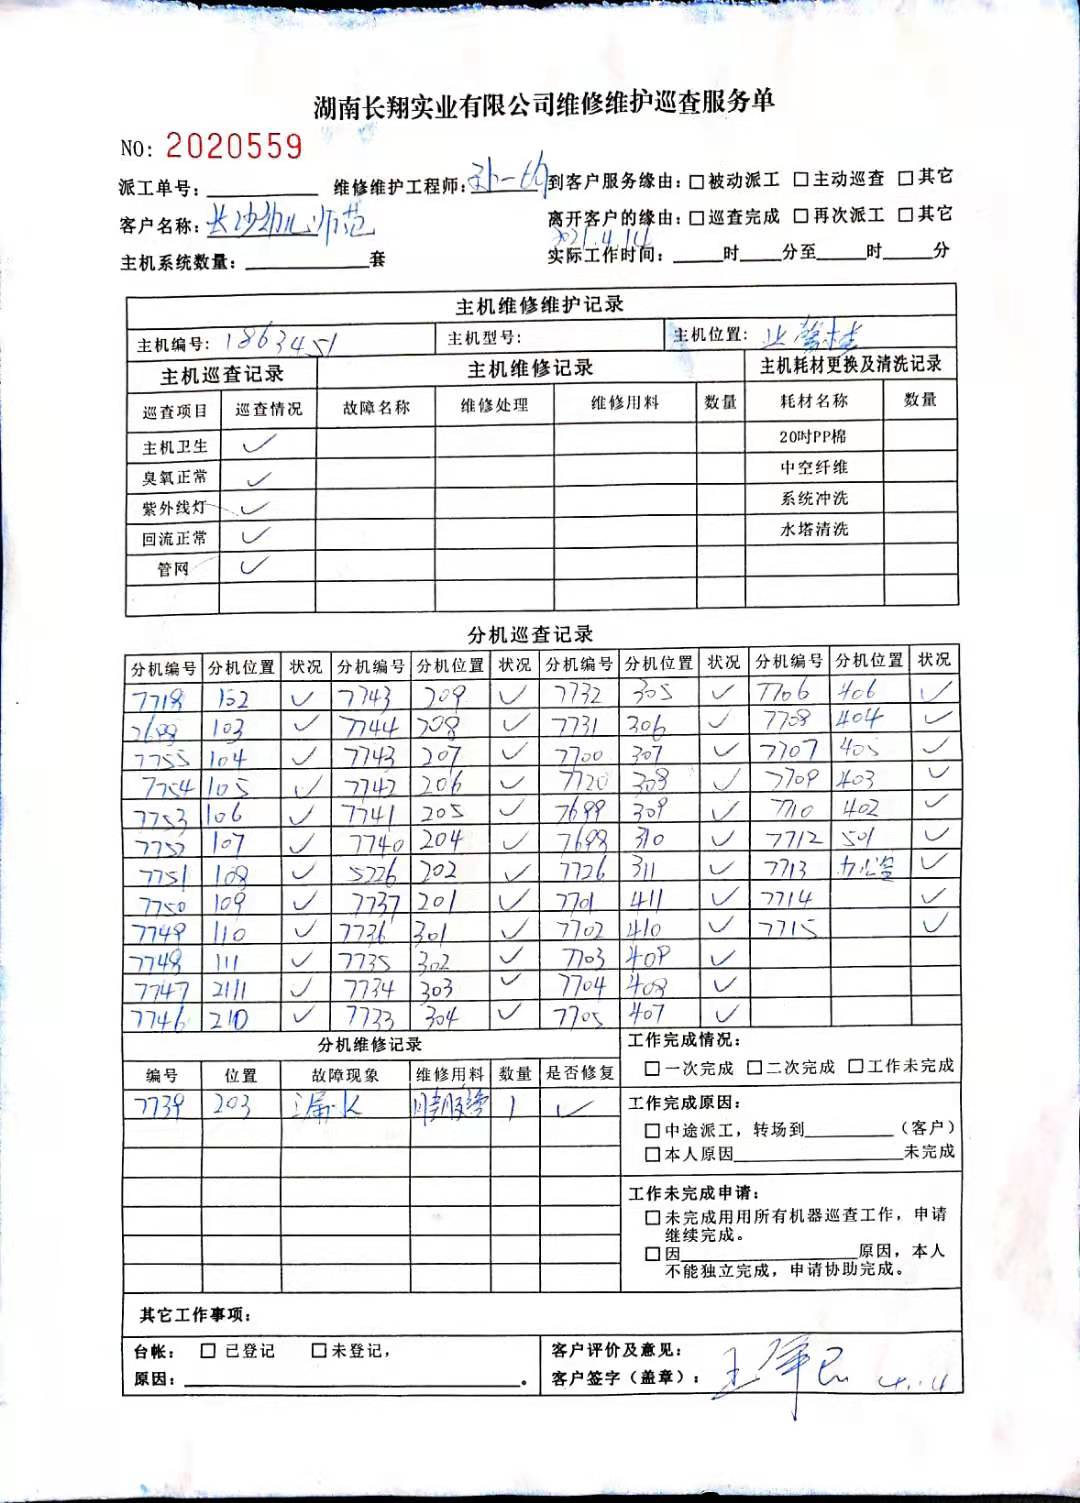 湖南长翔实业有限公司维修维护巡查服务单
NO: 2020559
派工单号: 维修维护工程师: 到客户服务缘由: □被动派工 □主动巡查 □其它
客户名称: 长沙幼儿师范 离开客户的缘由: □巡查完成 □再次派工 □其它
2021.4.14
主机系统数量: 套 实际工作时间: 时 分至 时 分
主机维修维护记录
主机编号: 1863451 主机型号: 主机位置:
主机巡查记录 主机维修记录 主机耗材更换及清洗记录
巡查项目 巡查情况 故障名称 维修处理 维修用料 数量 耗材名称 数量
主机卫生 ✓ 20吋PP棉
臭氧正常 ✓ 中空纤维
紫外线灯 ✓ 系统冲洗
回流正常 ✓ 水塔清洗
管网 ✓
分机巡查记录
分机编号 分机位置 状况 分机编号 分机位置 状况 分机编号 分机位置 状况 分机编号 分机位置 状况
7718 102 ✓ 7743 209 ✓ 7732 305 ✓ 7706 406 ✓
103 ✓ 7744 208 ✓ 7731 306 ✓ 7708 404 ✓
7755 104 ✓ 7743 207 ✓ 7700 307 ✓ 7707 405 ✓
7754 105 ✓ 7742 206 ✓ 7720 308 ✓ 7709 403 ✓
7753 106 ✓ 7741 205 ✓ 7699 309 ✓ 7710 402 ✓
7752 107 ✓ 7740 204 ✓ 7698 310 ✓ 7712 501 ✓
7751 108 ✓ 5726 202 ✓ 7726 311 ✓ 7713 办公室 ✓
7750 109 ✓ 7737 201 ✓ 7701 411 ✓ 7714 ✓
7749 110 ✓ 7736 301 ✓ 7702 410 ✓ 7715 ✓
7748 111 ✓ 7735 302 ✓ 7703 409 ✓
7747 2111 ✓ 7734 303 ✓ 7704 408 ✓
7746 210 ✓ 7733 304 ✓ 7705 407 ✓
分机维修记录 工作完成情况:
□一次完成 □二次完成 □工作未完成
编号 位置 故障现象 维修用料 数量 是否修复
7739 203 漏水 1 ✓
工作完成原因:
□中途派工，转场到 (客户)
□本人原因 未完成
工作未完成申请:
□未完成用用所有机器巡查工作，申请
继续完成。
□因 原因，本人
不能独立完成，申请协助完成。
其它工作事项:
台帐: □ 已登记 □未登记， 客户评价及意见:
原因: 。 客户签字(盖章):